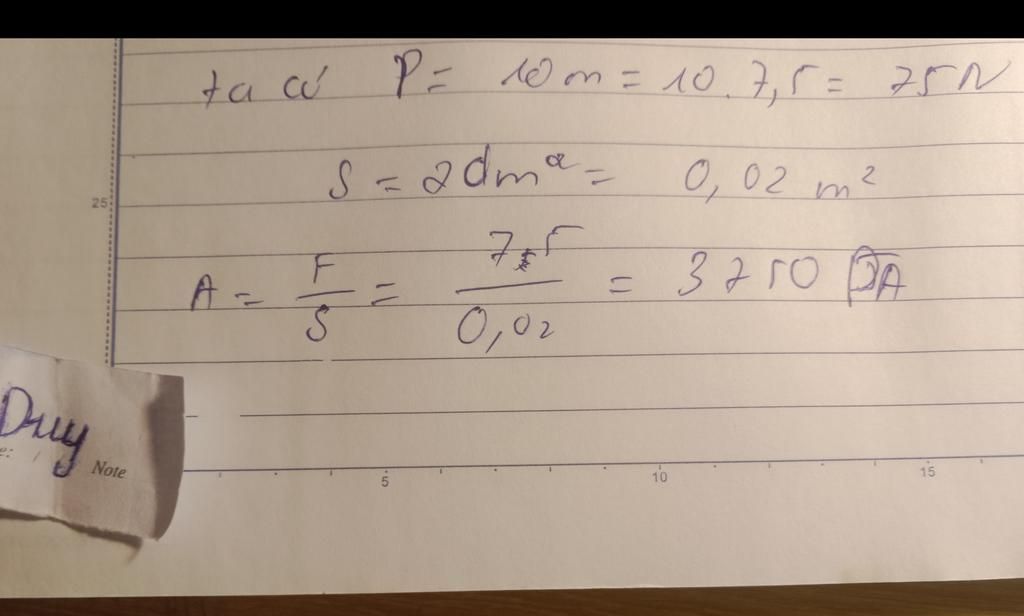 ta có P = 10m = 10.7,5 = 75N
S = 2dm² = 0,02 m²
25
A = F/S = 75/0,02 = 3750 PA
Duy
e:
Note
5 10 15